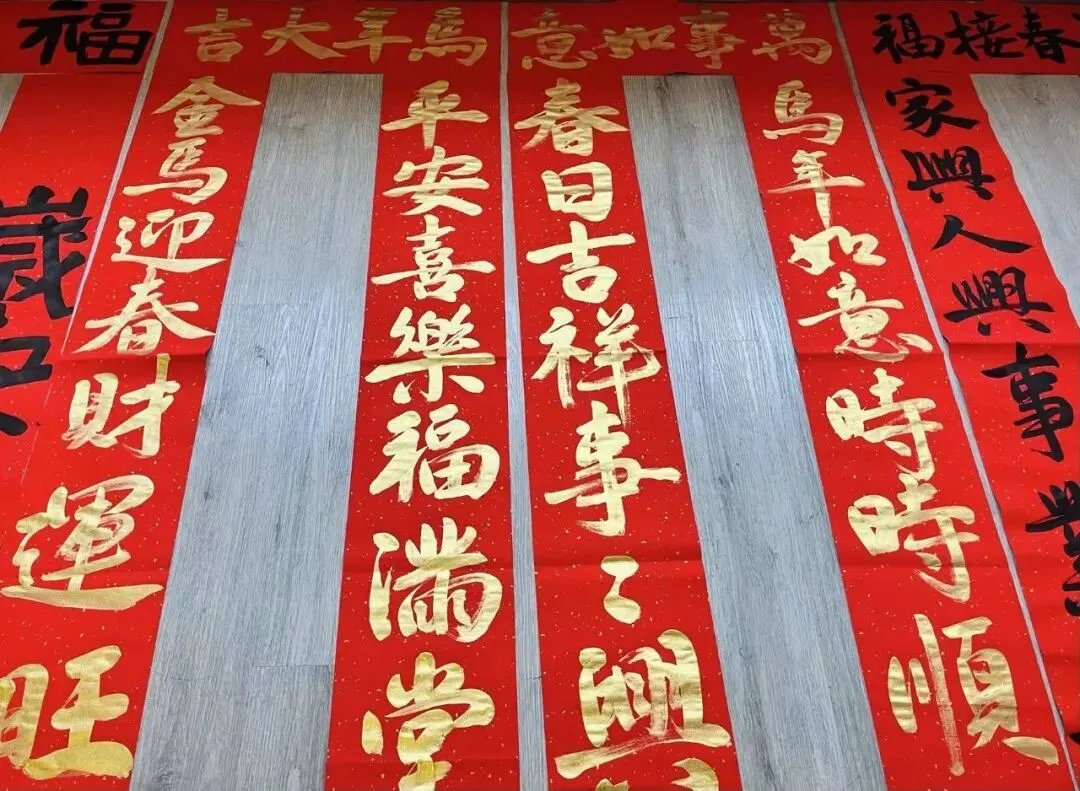 春接福
家興人興事業
萬事如意
馬年如意時時順
春日吉祥事〻興
馬年大吉
平安喜樂福滿堂
金馬迎春財運旺
福
歲